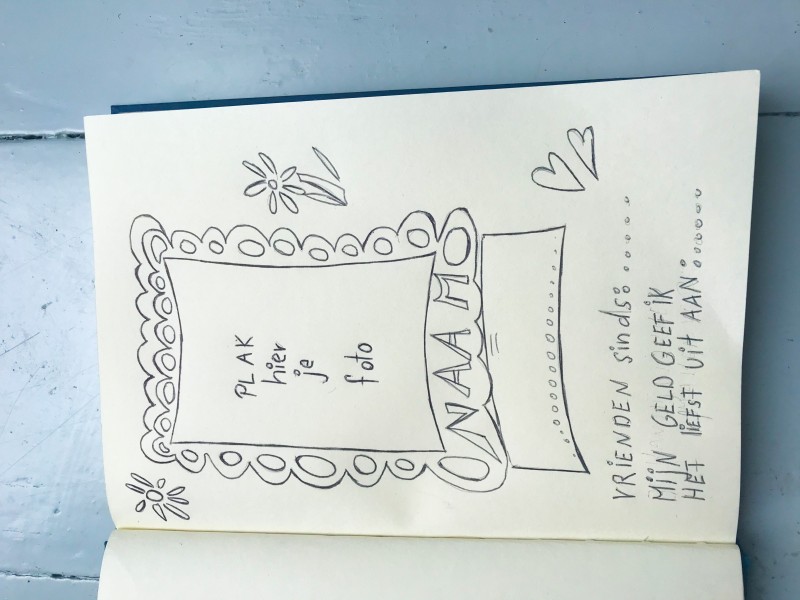 PLAK
hier
je
foto
NAAM
VRIENDEN sinds:......
MIJN GELD GEEF IK
HET LIEFST UIT AAN:......